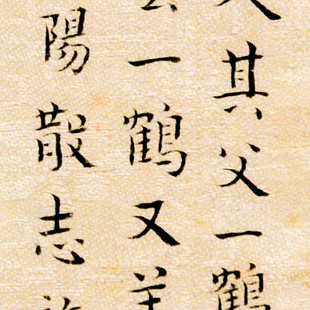 其父一鶴
一鶴又
陽散志